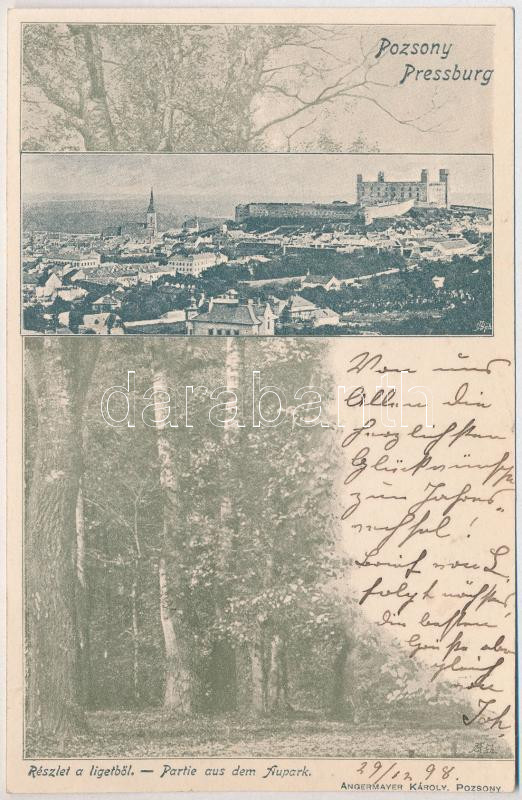 Pozsony
Pressburg
darabanth
Von uns
Allen die
herzlichsten
Glückwünsche
zum Jahres-
wechsel!
Brief von L.
folgt nächstens
die besten
Grüße aber
gleich
von
Joh.
Részlet a ligetből. — Partie aus dem Aupark.
29/12 98.
ANGERMAYER KÁROLY, POZSONY